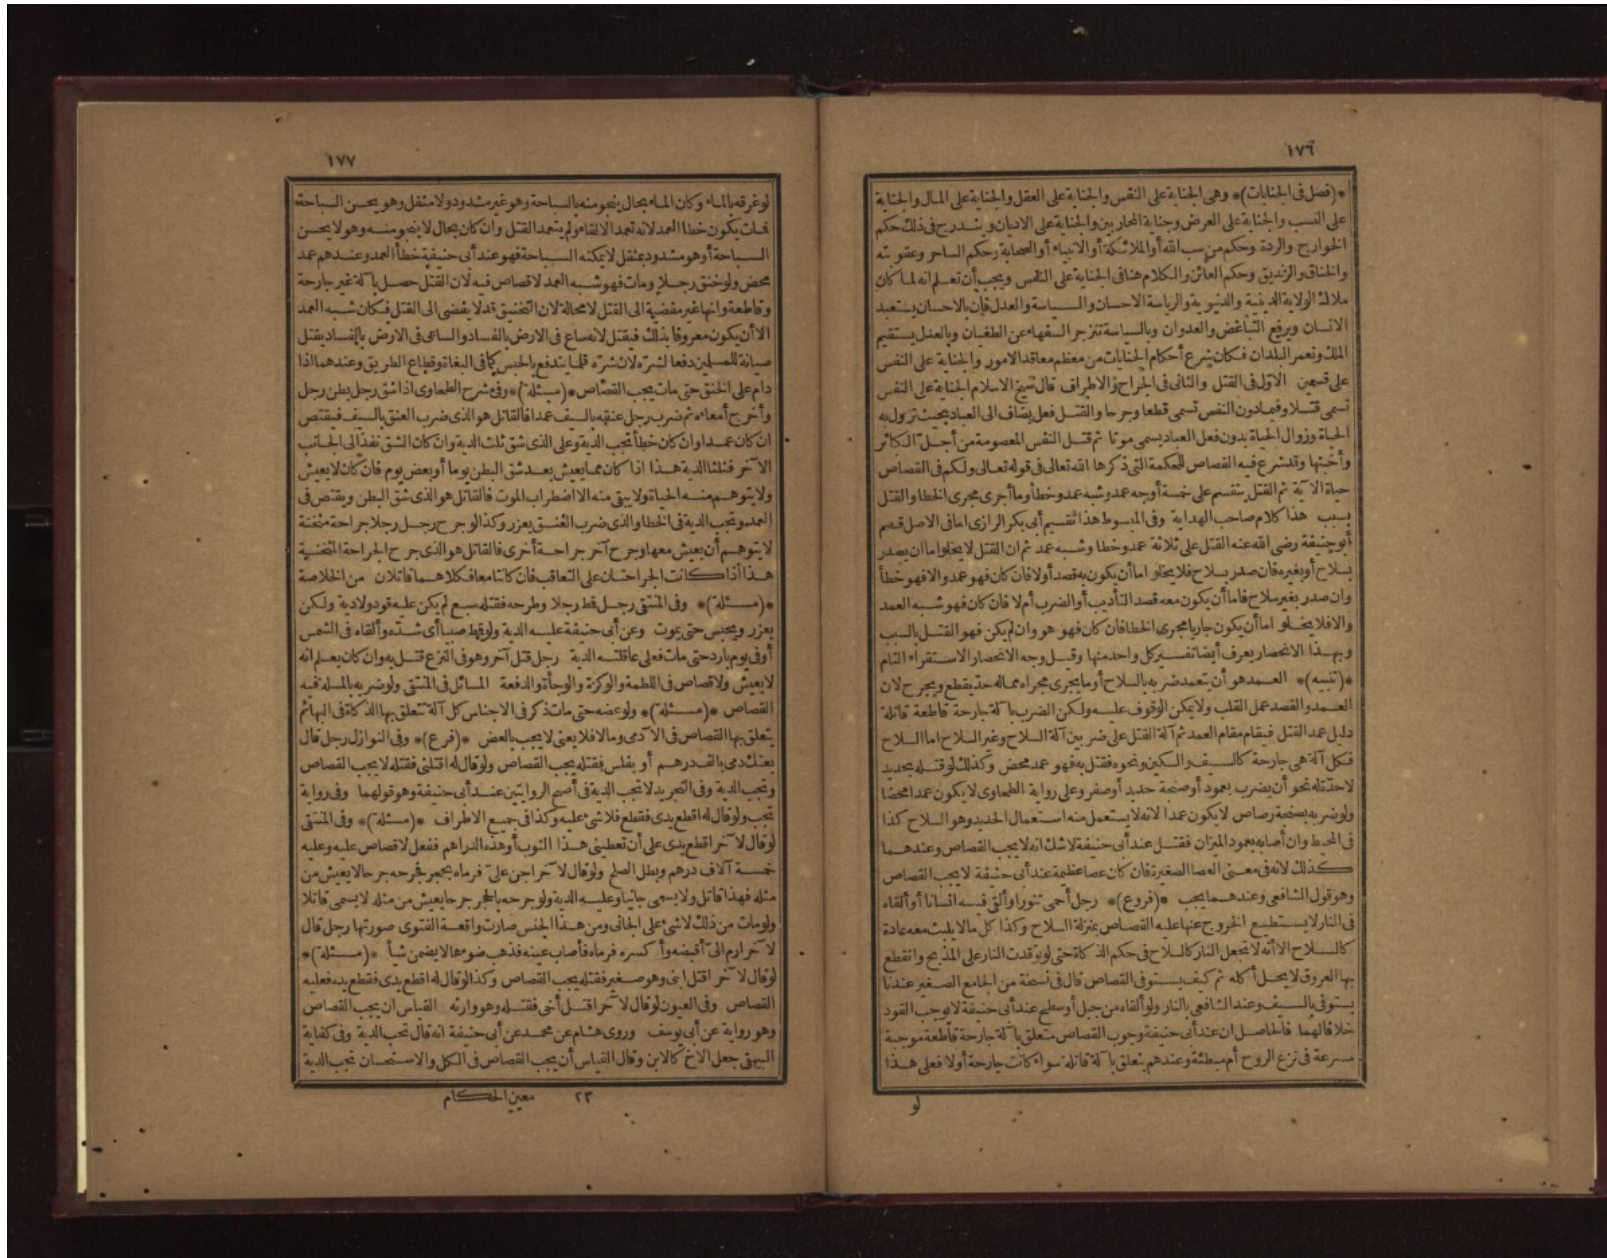 ١٧٦
*(فصل فى الجنايات)* وهى الجناية على النفس والجناية على العقل والجناية على المال والجناية
على النسب والجناية على العرض وجناية المحاربين والجناية على الاديان ويندرج فى ذلك حكم
الخوارج والردة وحكم من سب الله أو الملائكة أو الانبياء أو الصحابة وحكم الساحر وعقوبته
والخناق والزنديق وحكم العائن والكلام هنا فى الجناية على النفس ويجب أن تعلم انه لما كان
ملاك الولاية الدينية والدنيوية والرياسة الاحسان والسياسة والعدل فان بالاحسان يستعبد
الانسان ويرفع التباغض والعدوان وبالسياسة تنزجر السفهاء عن الطغيان وبالعدل يستقيم
الملك وتعمر البلدان فكان شرع أحكام الجنايات من معظم معاقد الامور والجناية على النفس
على قسمين الاول فى القتل والثانى فى الجراح والاطراف قال شيخ الاسلام الجناية على النفس
تسمى قتلا وفيما دون النفس تسمى قطعا وجرحا والقتل فعل يضاف الى العباد بحيث تزول به
الحياة وزوال الحياة بدون فعل العباد يسمى موتا ثم قتل النفس المعصومة من أجل الكبائر
وأخبثها وقد شرع فيه القصاص للحكمة التى ذكرها الله تعالى فى قوله تعالى ولكم فى القصاص
حياة الآية ثم القتل ينقسم على خمسة أوجه عمد وشبه عمد وخطأ وما أجرى مجرى الخطا والقتل
بسبب هذا كلام صاحب الهداية وفى المبسوط هذا تقسيم أبى بكر الرازى اما فى الاصل قسم
أبو حنيفة رضى الله عنه القتل على ثلاثة عمد وخطا وشبه عمد ثم ان القتل لا يخلو اما ان يصدر
بسلاح أو بغيره فان صدر بسلاح فلا يخلو اما أن يكون به قصد أو لا فان كان فهو عمد والا فهو خطأ
وان صدر بغير سلاح فاما أن يكون معه قصد التأديب أو الضرب أم لا فان كان فهو شبه العمد
والا فلا يخلو اما أن يكون جاريا مجرى الخطا فان كان فهو هو وان لم يكن فهو القتل بالسبب
وبهذا الانحصار يعرف أيضا تفسير كل واحد منها وقيل وجه الانحصار الاستقراء التام
*(تنبيه)* العمد هو أن يتعمد ضربه بالسلاح أو ما يجرى مجراه مما له حد يقطع ويجرح لان
العمد والقصد عمل القلب ولا يمكن الوقوف عليه ولكن الضرب بآلة جارحة قاطعة قاتلة
دليل عمد القتل فيقام مقام العمد ثم آلة القتل على ضربين آلة السلاح وغير السلاح اما السلاح
فكل آلة هى جارحة كالسيف والسكين ونحوه فقتل به فهو عمد محض وكذلك لو قتله بحديد
لا حد له نحو أن يضرب بعمود أو صنجة حديد أو صفر وعلى رواية الطحاوى لا يكون عمدا محضا
ولو ضربه بصنجة رصاص لا يكون عمدا لانه لا يستعمل منه استعمال الحديد وهو السلاح كذا
فى المحيط وان أصابه بعمود الميزان فقتل عند أبى حنيفة لا شك انه لا يجب القصاص وعندهما
كذلك لانه فى معنى العصا الصغيرة فان كان عصا عظيمة عند أبى حنيفة لا يجب القصاص
وهو قول الشافعى وعندهما يجب *(فروع)* رجل أحمى تنورا وألقى فيه انسانا أو ألقاه
فى النار لا يستطيع الخروج عنها عليه القصاص بمنزلة السلاح وكذا كل ما لا يلبث معه عادة
كالسلاح الا أنه لا تجعل النار كالسلاح فى حكم الذكاة حتى لو توقدت النار على المذبح وانقطع
بها العروق لا يحل أكله ثم كيف يستوفى القصاص قال فى نسخة من الجامع الصغير عندنا
يستوفى بالسيف وعند الشافعى بالنار ولو ألقاه من جبل أو سطح عند أبى حنيفة لا يوجب القود
خلافا لهما فالحاصل ان عند أبى حنيفة وجوب القصاص متعلق بآلة جارحة قاطعة موجبة
مسرعة فى نزع الروح أم مبطئة وعندهم يتعلق بآلة قاتلة سواء كانت جارحة أو لا فعلى هذا
لو
١٧٧
لو غرقه بالماء وكان الماء بحال ينجو منه بالسباحة وهو غير مشدود ولا مثقل وهو يحسن السباحة
فمات يكون خطا العمد لانه تعمد الالقاء ولم يتعمد القتل وان كان بحال لا ينجو منه وهو لا يحسن
السباحة أو هو مشدود بمثقل لا يمكنه السباحة فهو عند أبى حنيفة خطأ العمد وعندهم عمد
محض ولو خنق رجلا ومات فهو شبه العمد لا قصاص فيه لان القتل حصل بآلة غير جارحة
وقاطعة وانها غير مفضية الى القتل لا محالة لان التخنيق قد لا يفضى الى القتل فكان شبه العمد
الا أن يكون معروفا بذلك فيقتل لانه ساع فى الارض بالفساد والساعى فى الارض بالفساد يقتل
صيانة للمسلمين دفعا لشره لان شره قلما يندفع بالحبس كما فى البغاة وقطاع الطريق وعندهما اذا
دام على الخنق حتى مات يجب القصاص *(مسئلة)* وفى شرح الطحاوى اذا شق رجل بطن رجل
وأخرج أمعاءه ثم ضرب رجل عنقه بالسيف عمدا فالقاتل هو الذى ضرب العنق بالسيف فيقتص
ان كان عمدا وان كان خطأ تجب الدية وعلى الذى شق ثلث الدية وان كان الشق نفذ الى الجانب
الآخر فثلثا الدية هذا اذا كان مما يعيش بعد شق البطن يوما أو بعض يوم فان كان لا يعيش
ولا يتوهم منه الحياة ولا يبقى منه الا اضطراب الموت فالقاتل هو الذى شق البطن ويقتص فى
العمد وتجب الدية فى الخطا والذى ضرب العنق يعزر وكذا لو جرح رجل رجلا جراحة مثخنة
لا يتوهم أن يعيش معها وجرح آخر جراحة أخرى فالقاتل هو الذى جرح الجراحة المثخنة
هذا اذا كانت الجراحتان على التعاقب فان كانتا معا فكلاهما قاتلان من الخلاصة
*(مسئلة)* وفى المنتقى رجل قط رجلا وطرحه فقتله سبع لم يكن عليه قود ولا دية ولكن
يعزر ويحبس حتى يموت وعن أبى حنيفة عليه الدية ولو قمط صبيا أى شده وألقاه فى الشمس
أو فى يوم بارد حتى مات فعلى عاقلته الدية رجل قتل آخر وهو فى النزع قتل به وان كان يعلم انه
لا يعيش ولا قصاص فى اللطمة والوكزة والوجأة والدفعة المسائل فى المنتقى ولو ضربه بالمسلة فيه
القصاص *(مسئلة)* ولو عضه حتى مات ذكر فى الاجناس كل آلة تتعلق بها الذكاة فى البهائم
يتعلق بها القصاص فى الآدمى وما لا فلا يعنى لا يجب بالعض *(فرع)* وفى النوازل رجل قال
بعتك دمى بألف درهم أو بفلس فقتله يجب القصاص ولو قال له اقتلنى فقتله لا يجب القصاص
وتجب الدية وفى التجريد لا تجب الدية فى أصح الروايتين عند أبى حنيفة وهو قولهما وفى رواية
تجب ولو قال له اقطع يدى فقطع فلا شئ عليه وكذا فى جميع الاطراف *(مسئلة)* وفى المنتقى
لو قال لآخر اقطع يدى على أن تعطينى هذا الثوب أو هذه الدراهم ففعل لا قصاص عليه وعليه
خمسة آلاف درهم وبطل الصلح ولو قال لآخر اجن على فرماه بحجر فجرحه جرحا لا يعيش من
مثله فهذا قاتل ولا يسمى جانيا وعليه الدية ولو جرحه بالحجر جرحا يعيش من مثله لا يسمى قاتلا
ولو مات من ذلك لا شئ على الجانى ومن هذا الجنس صارت واقعة الفتوى صورتها رجل قال
لآخر ارم الى أقبضه وأكسره فرماه فأصاب عينه فذهب ضوءها لا يضمن شيأ *(مسئلة)*
لو قال لآخر اقتل ابنى وهو صغير فقتله يجب القصاص وكذا لو قال له اقطع يدى فقطع يده فعليه
القصاص وفى العيون لو قال لآخر اقتل أخى فقتله وهو وارثه القياس ان يجب القصاص
وهو رواية عن أبى يوسف وروى هشام عن محمد عن أبى حنيفة انه قال تجب الدية وفى كفاية
البيهقى جعل الاخ كالابن وقال القياس أن يجب القصاص فى الكل والاستحسان تجب الدية
٢٣ معين الحكام